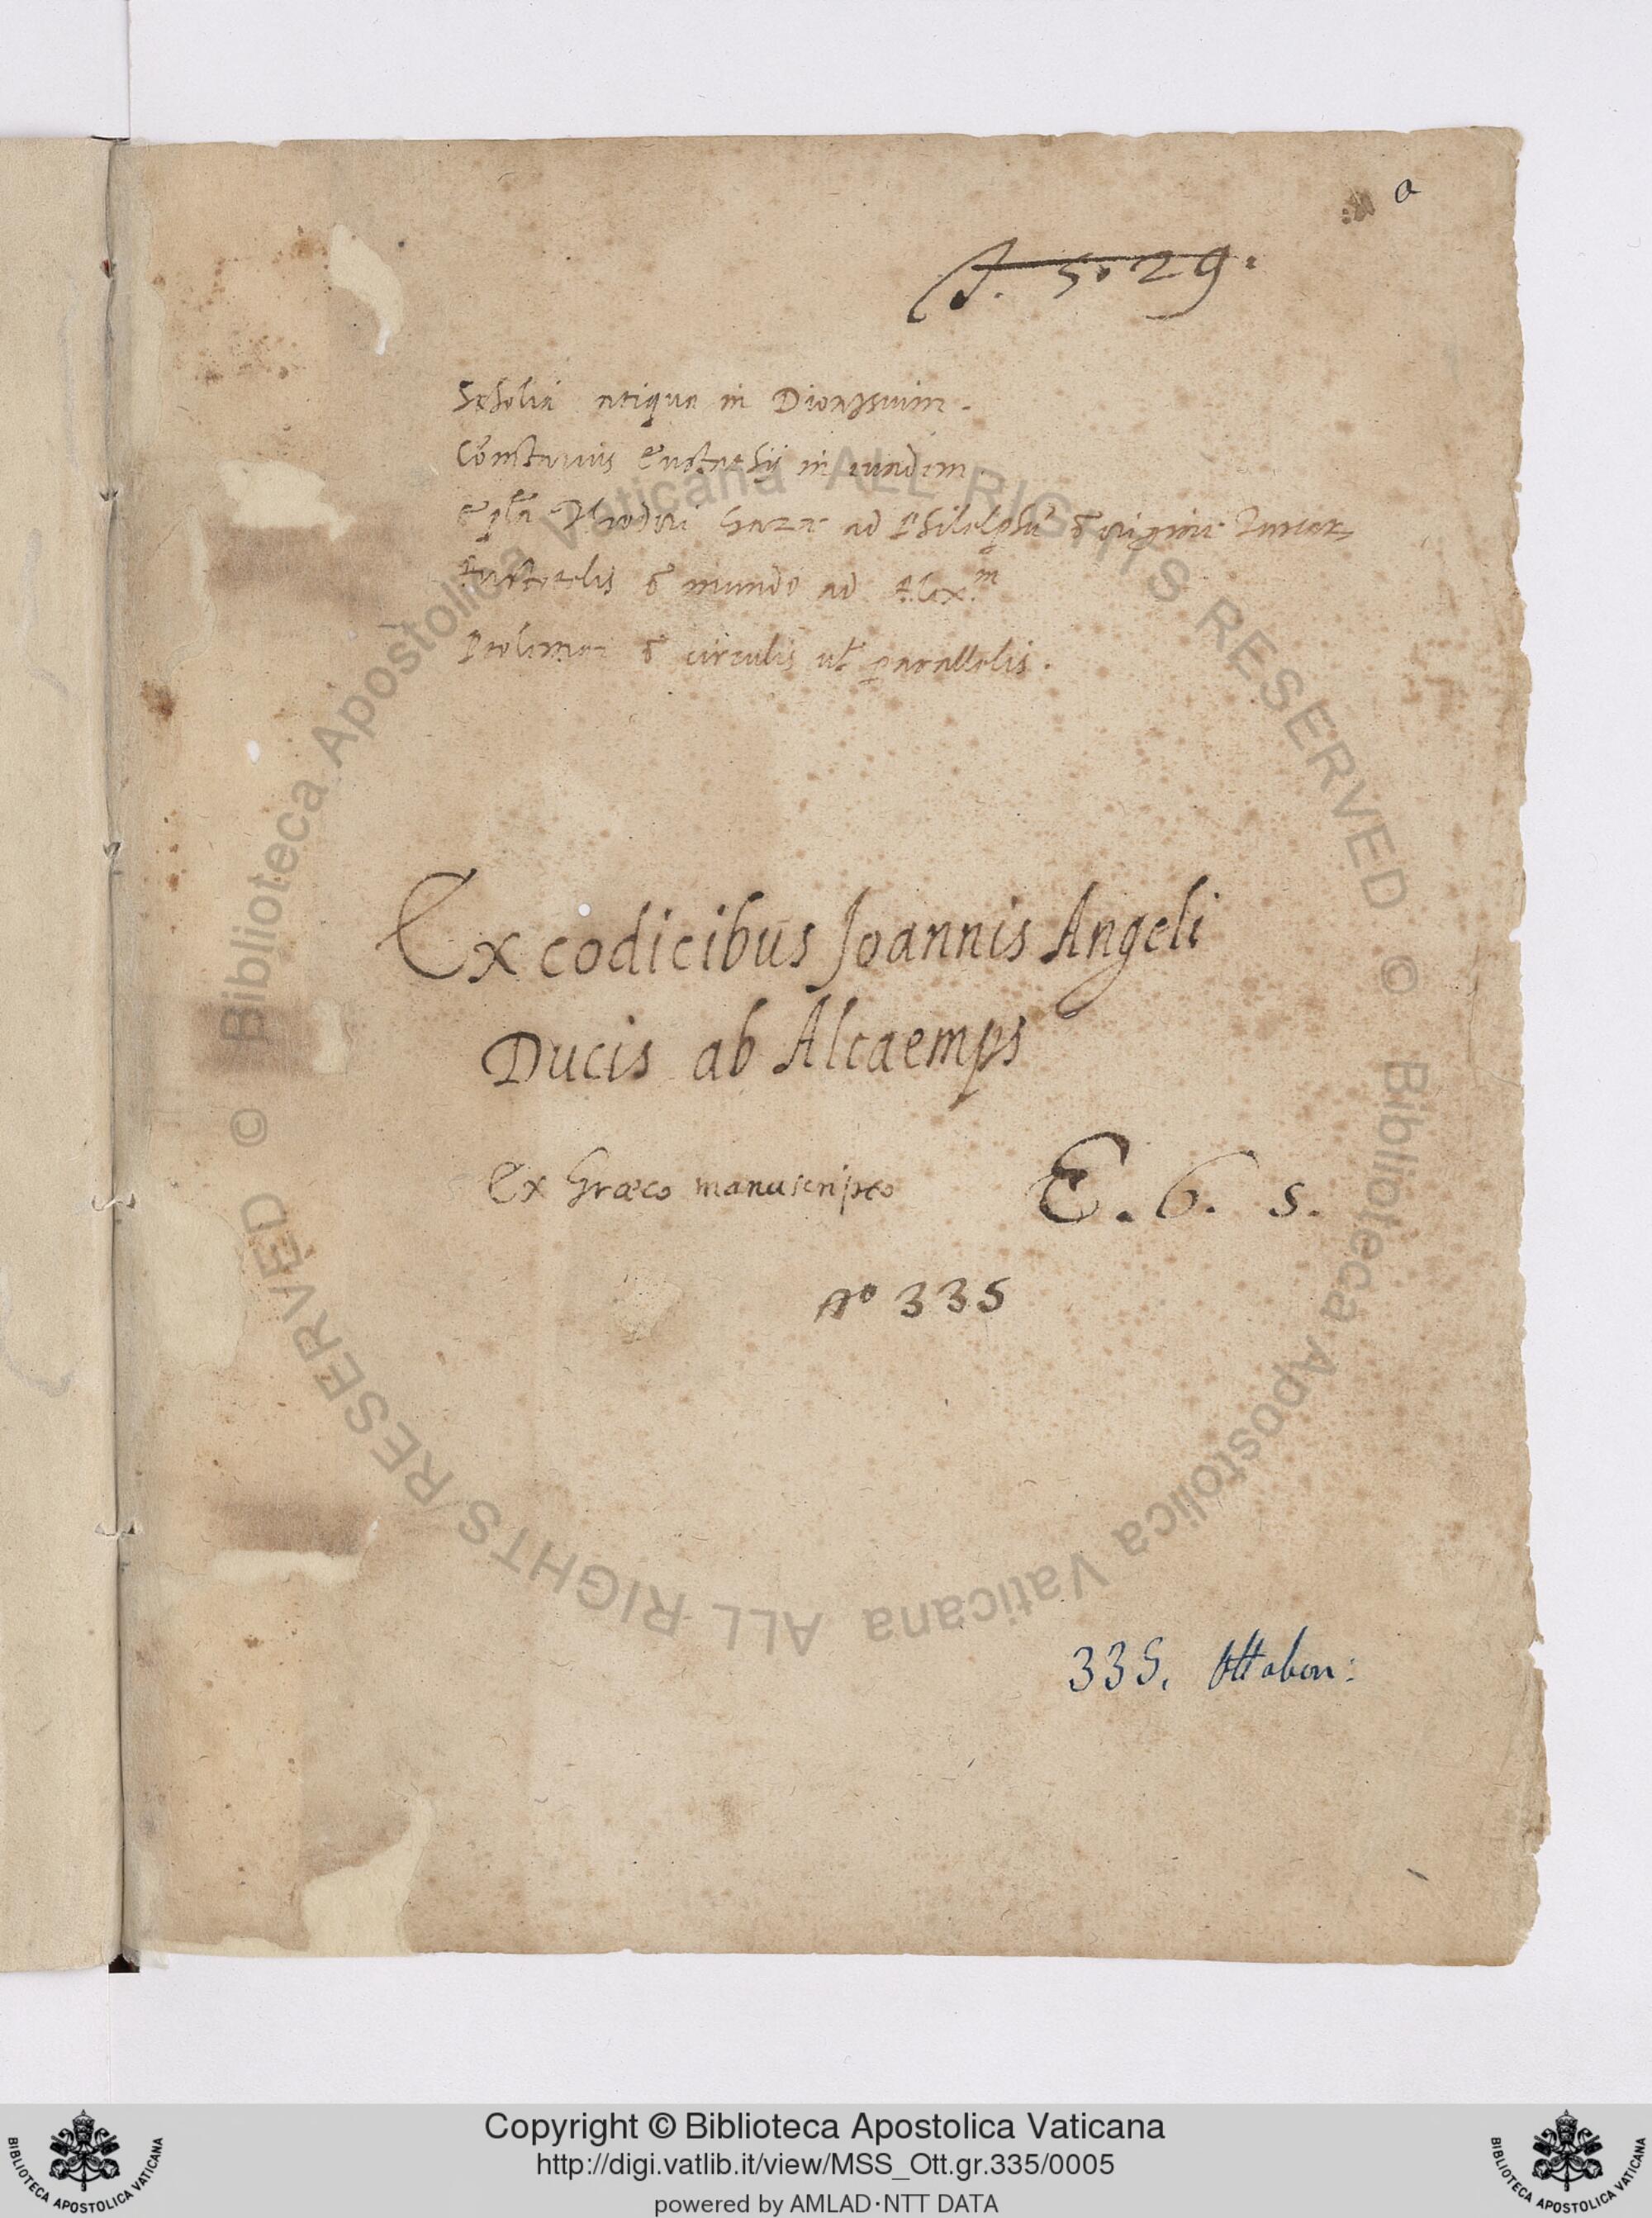 a
J. 5. 29.
Scholia antiqua in Dionysium.
Cōmētarius Eustathij in eundem.
Epl̄a Theodori Gazae ad Philelphū origine Turcar
Aristotelis mundo ad Alex.m
Ptolemaei circulis parallelis.
Ex codicibus Joannis Angeli
Ducis ab Altaemps
Ex Græco manuscripto E. 6. s.
No 335
335. Ottobon:
© Biblioteca Apostolica Vaticana ALL RIGHTS RESERVED
© Biblioteca Apostolica Vaticana ALL RIGHTS RESERVED
BIBLIOTECA APOSTOLICA VATICANA
Copyright © Biblioteca Apostolica Vaticana
http://digi.vatlib.it/view/MSS_Ott.gr.335/0005
powered by AMLAD·NTT DATA
BIBLIOTECA APOSTOLICA VATICANA